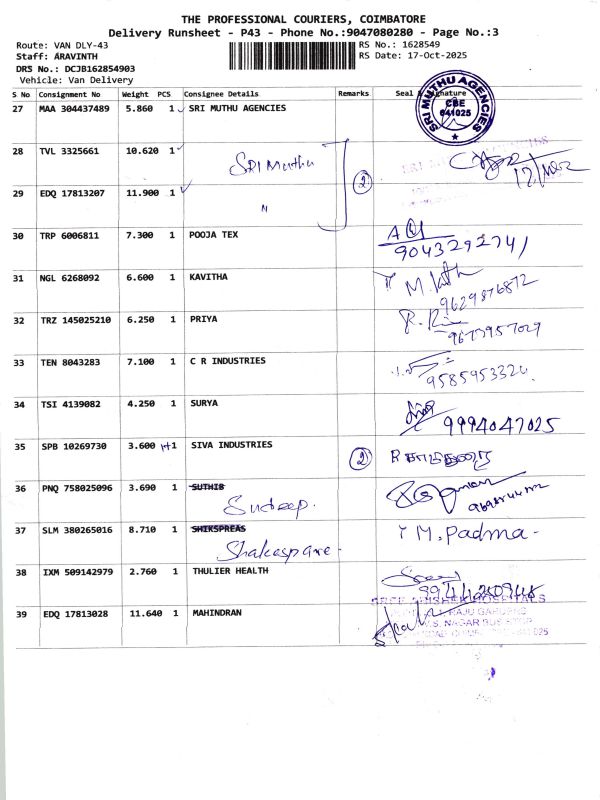 THE PROFESSIONAL COURIERS, COIMBATORE
Delivery Runsheet - P43 - Phone No.:9047080280 - Page No.:3
Route: VAN DLY-43
RS No.: 1628549
Staff: ARAVINTH
RS Date: 17-Oct-2025
DRS No.: DCJB162854903
Vehicle: Van Delivery
S No Consignment No Weight PCS Consignee Details Remarks Seal & Signature
27 MAA 304437489 5.860 1 SRI MUTHU AGENCIES
SRI MUTHU AGENCIES
CBE
641025
28 TVL 3325661 10.620 1 SRI Muthu
29 EDQ 17813207 11.900 1 " 2
30 TRP 6006811 7.300 1 POOJA TEX
9043292741
31 NGL 6268092 6.600 1 KAVITHA
9629876872
32 TRZ 145025210 6.250 1 PRIYA
9673957029
33 TEN 8043283 7.100 1 C R INDUSTRIES
9585953326
34 TSI 4139082 4.250 1 SURYA
9994047025
35 SPB 10269730 3.600 1+1 SIVA INDUSTRIES 2
36 PNQ 758025096 3.690 1 SUTHIB
Sudeep.
37 SLM 380265016 8.710 1 SHIKSPREAS
Shakespare - M. Padma -
38 IXM 509142979 2.760 1 THULIER HEALTH
39 EDQ 17813028 11.640 1 MAHINDRAN